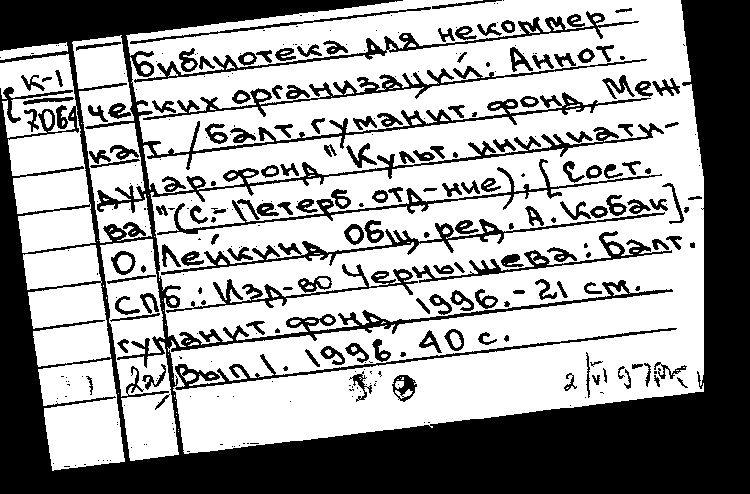 Библиотека для некоммер-
К-1
7064
ческих организаций: Аннот.
кат. / Балт. гуманит. фонд, Меж-
дунар. фонд "Культ. инициати-
ва" (С.-Петерб. отд-ние); [Сост.
О. Лейкинд, Общ. ред. А. Кобак]. -
СПб.: Изд-во Чернышева: Балт.
гуманит. фонд, 1996. - 21 см.
Вып. 1. 1996. 40 с.